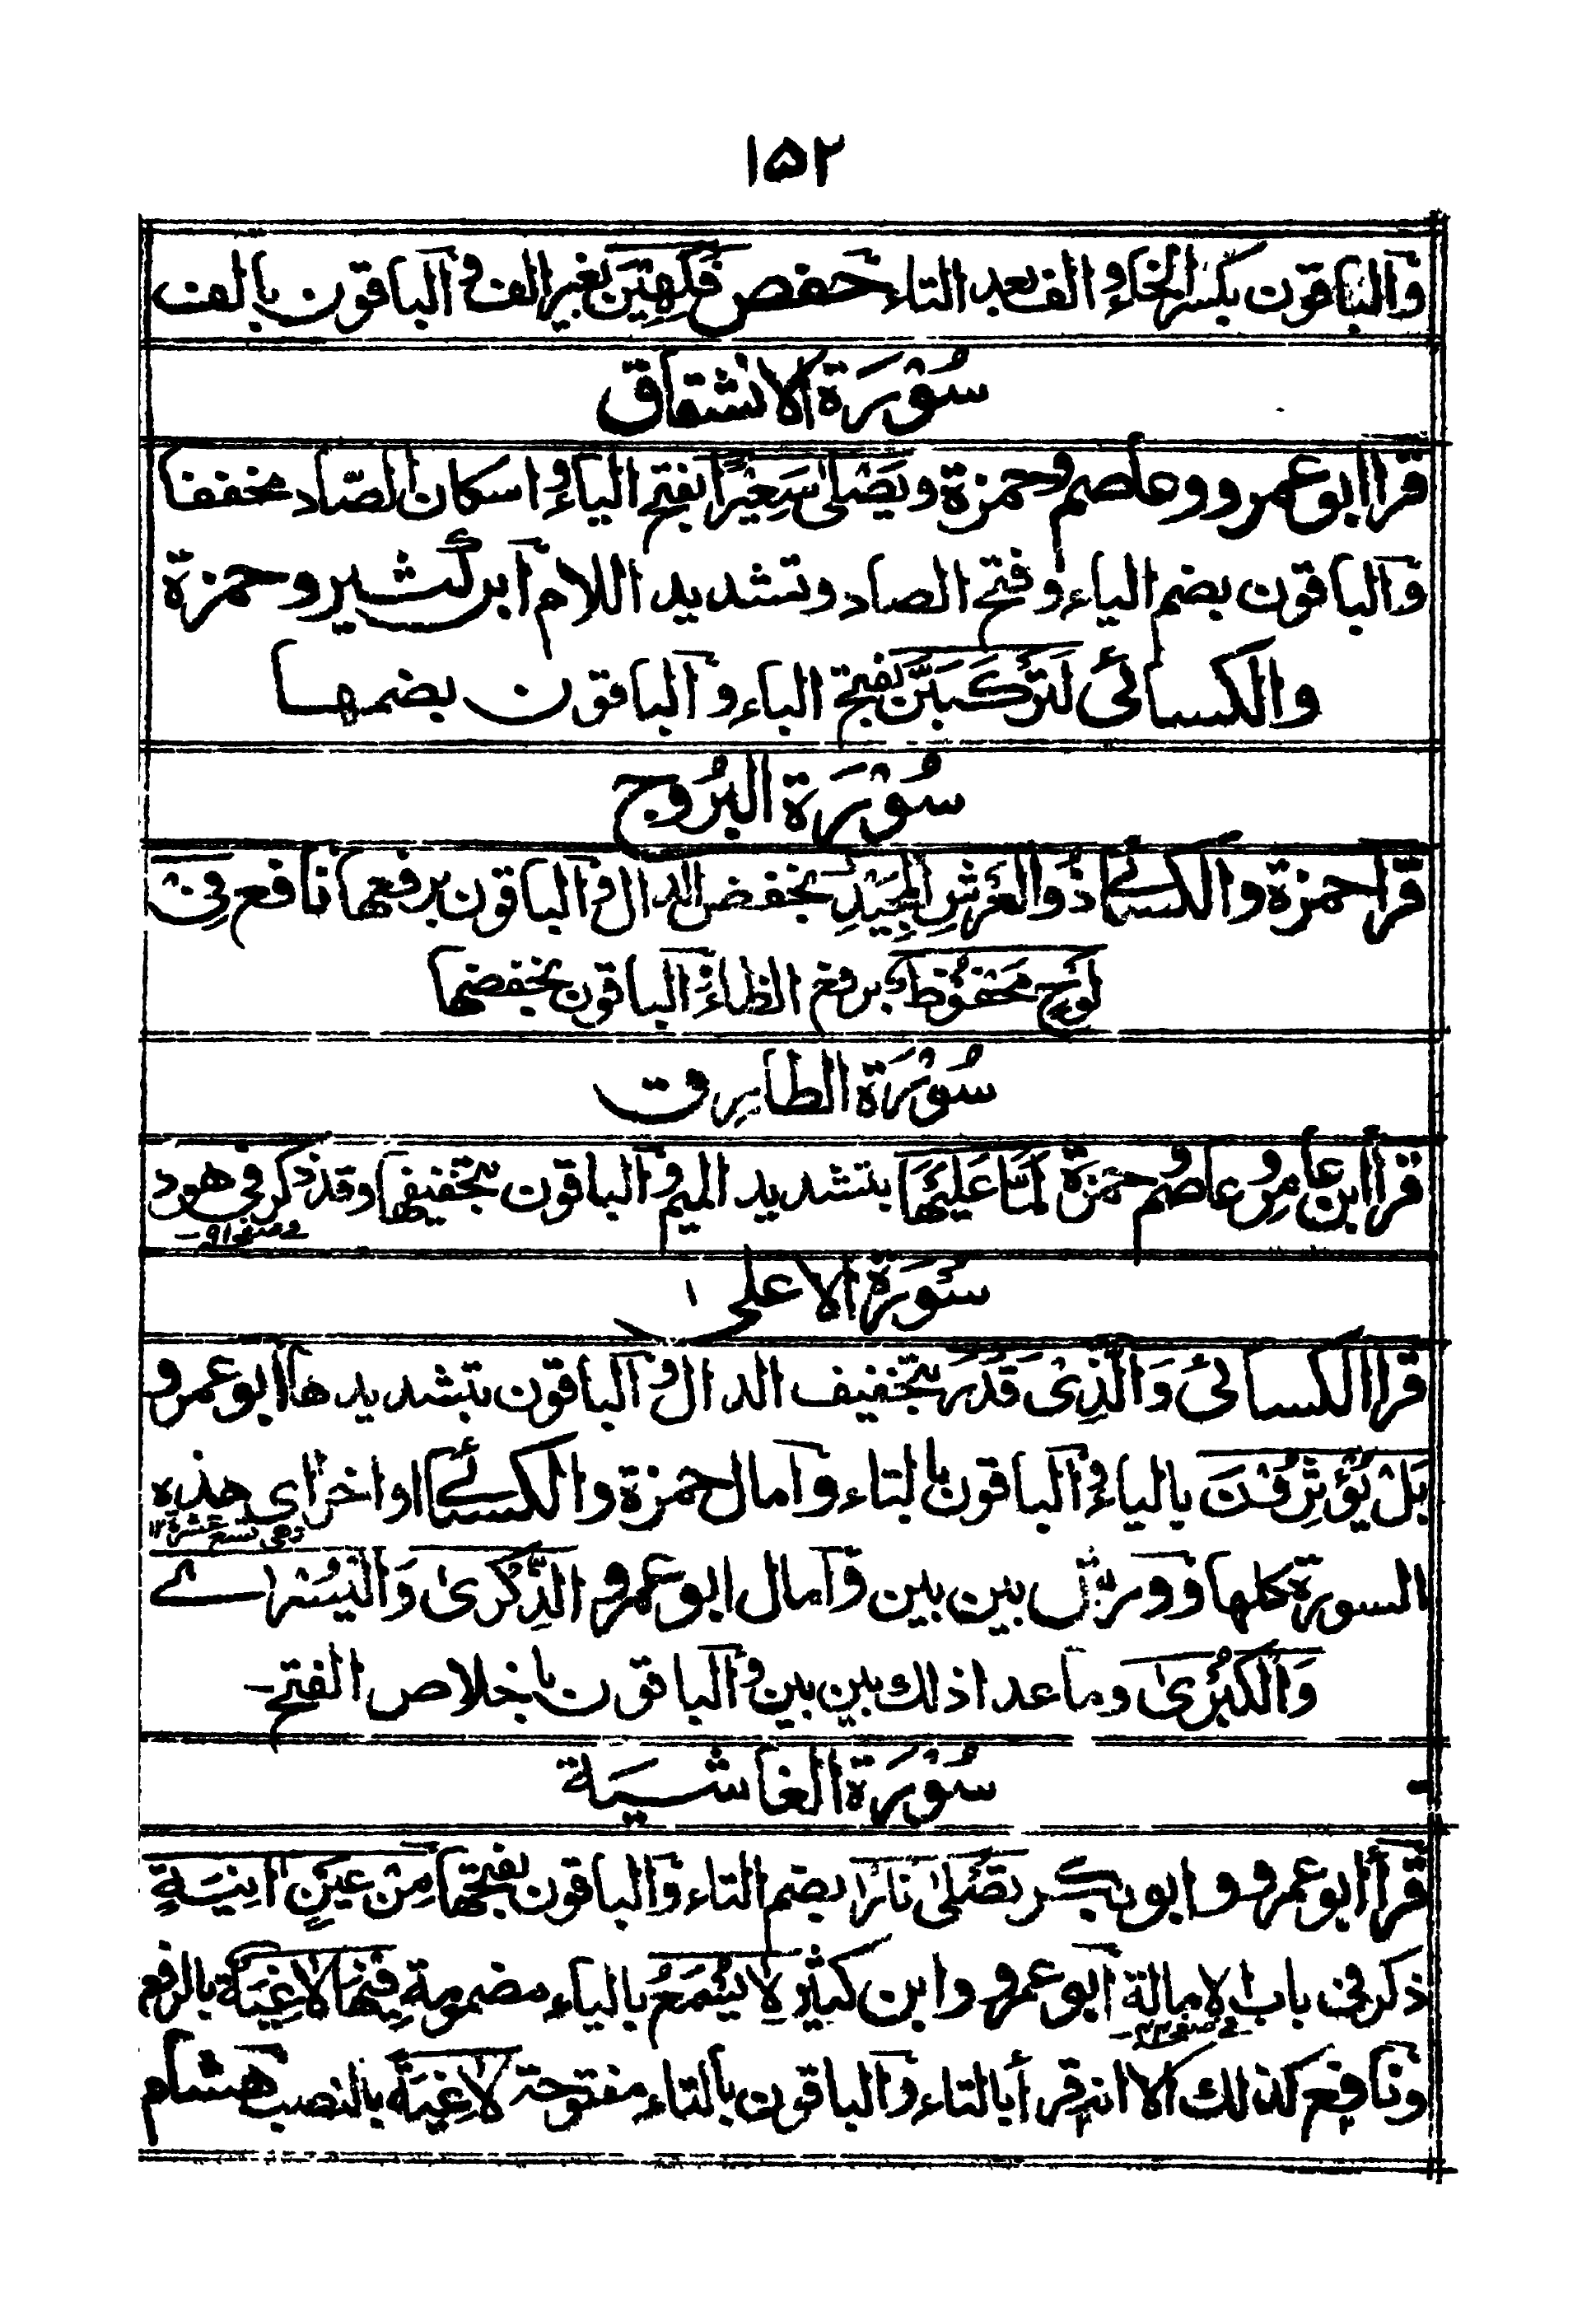 ۱۵۲
والباقون بكسر الخاء و الف بعد التاء حفص فَكِهِيْنَ بغير الف و الباقون بالف
سُوْرَة الانشقاق
قرا ابو عمرو و عاصم و حمزة و يَصْلٰى سَعِيْرًا بفتح الياء و اسكان الصّاد مخففا
والباقون بضم الياء و فتح الصاد و تشديد اللام ابن كثير و حمزة
والكسائى لَتَرْكَبَنَّ بفتح الباء و الباقون بضمها
سُوْرَة البُرُوج
قرا حمزة والكسائے ذُو الْعَرْشِ الْمَجِيْدِ بخفض الدال و الباقون برفعها نافع فِىْ
لَوْحٍ مَحْفُوْظٌ برفع الظاء و الباقون بخفضها
سُوْرَة الطارِق
قرا ابن عامرٍ و عاصم و حمزة لَمَّا عَلَيْهَا بتشديد الميم و الباقون بتخفيفها و قد ذكر فى هود
فى صفحه ۹۱ـ
سُوْرَة الاعلىٰ
قرا الكسائى وَ الَّذِىْ قَدَرَ بتخفيف الدال و الباقون بتشديدها ابو عمرو
بَلْ يُؤْثِرُوْنَ بالياء و الباقون بالتاء و امال حمزة والكسائے اواخر اٰى هذه
وهى تسع عشرة ۱۲
السورة كلها و ورش بين بين و امال ابو عمرو الذِّكْرٰى وَ الْيُسْرٰے
وَ الْكُبْرٰى و ما عدا ذلك بين بين و الباقون باخلاص الفتح ـ
سُوْرَة الغاشيَة
قرأ ابو عمرو و ابو بكر تُصْلٰى نَارًا بضم التاء و الباقون بفتحها مِنْ عَيْنٍ اٰنِيَةٍ
ذكر فى باب الامالة ابو عمرو و ابن كثير لَا يُسْمَعُ بالياء مضمومة فِيْهَا لَاغِيَةٌ بالرفع
فى صفحه ۴۳ـ
و نافع كذلك الا انه قرأ بالتاء و الباقون بالتاء مفتوحة لَاغِيَةً بالنصب هشام